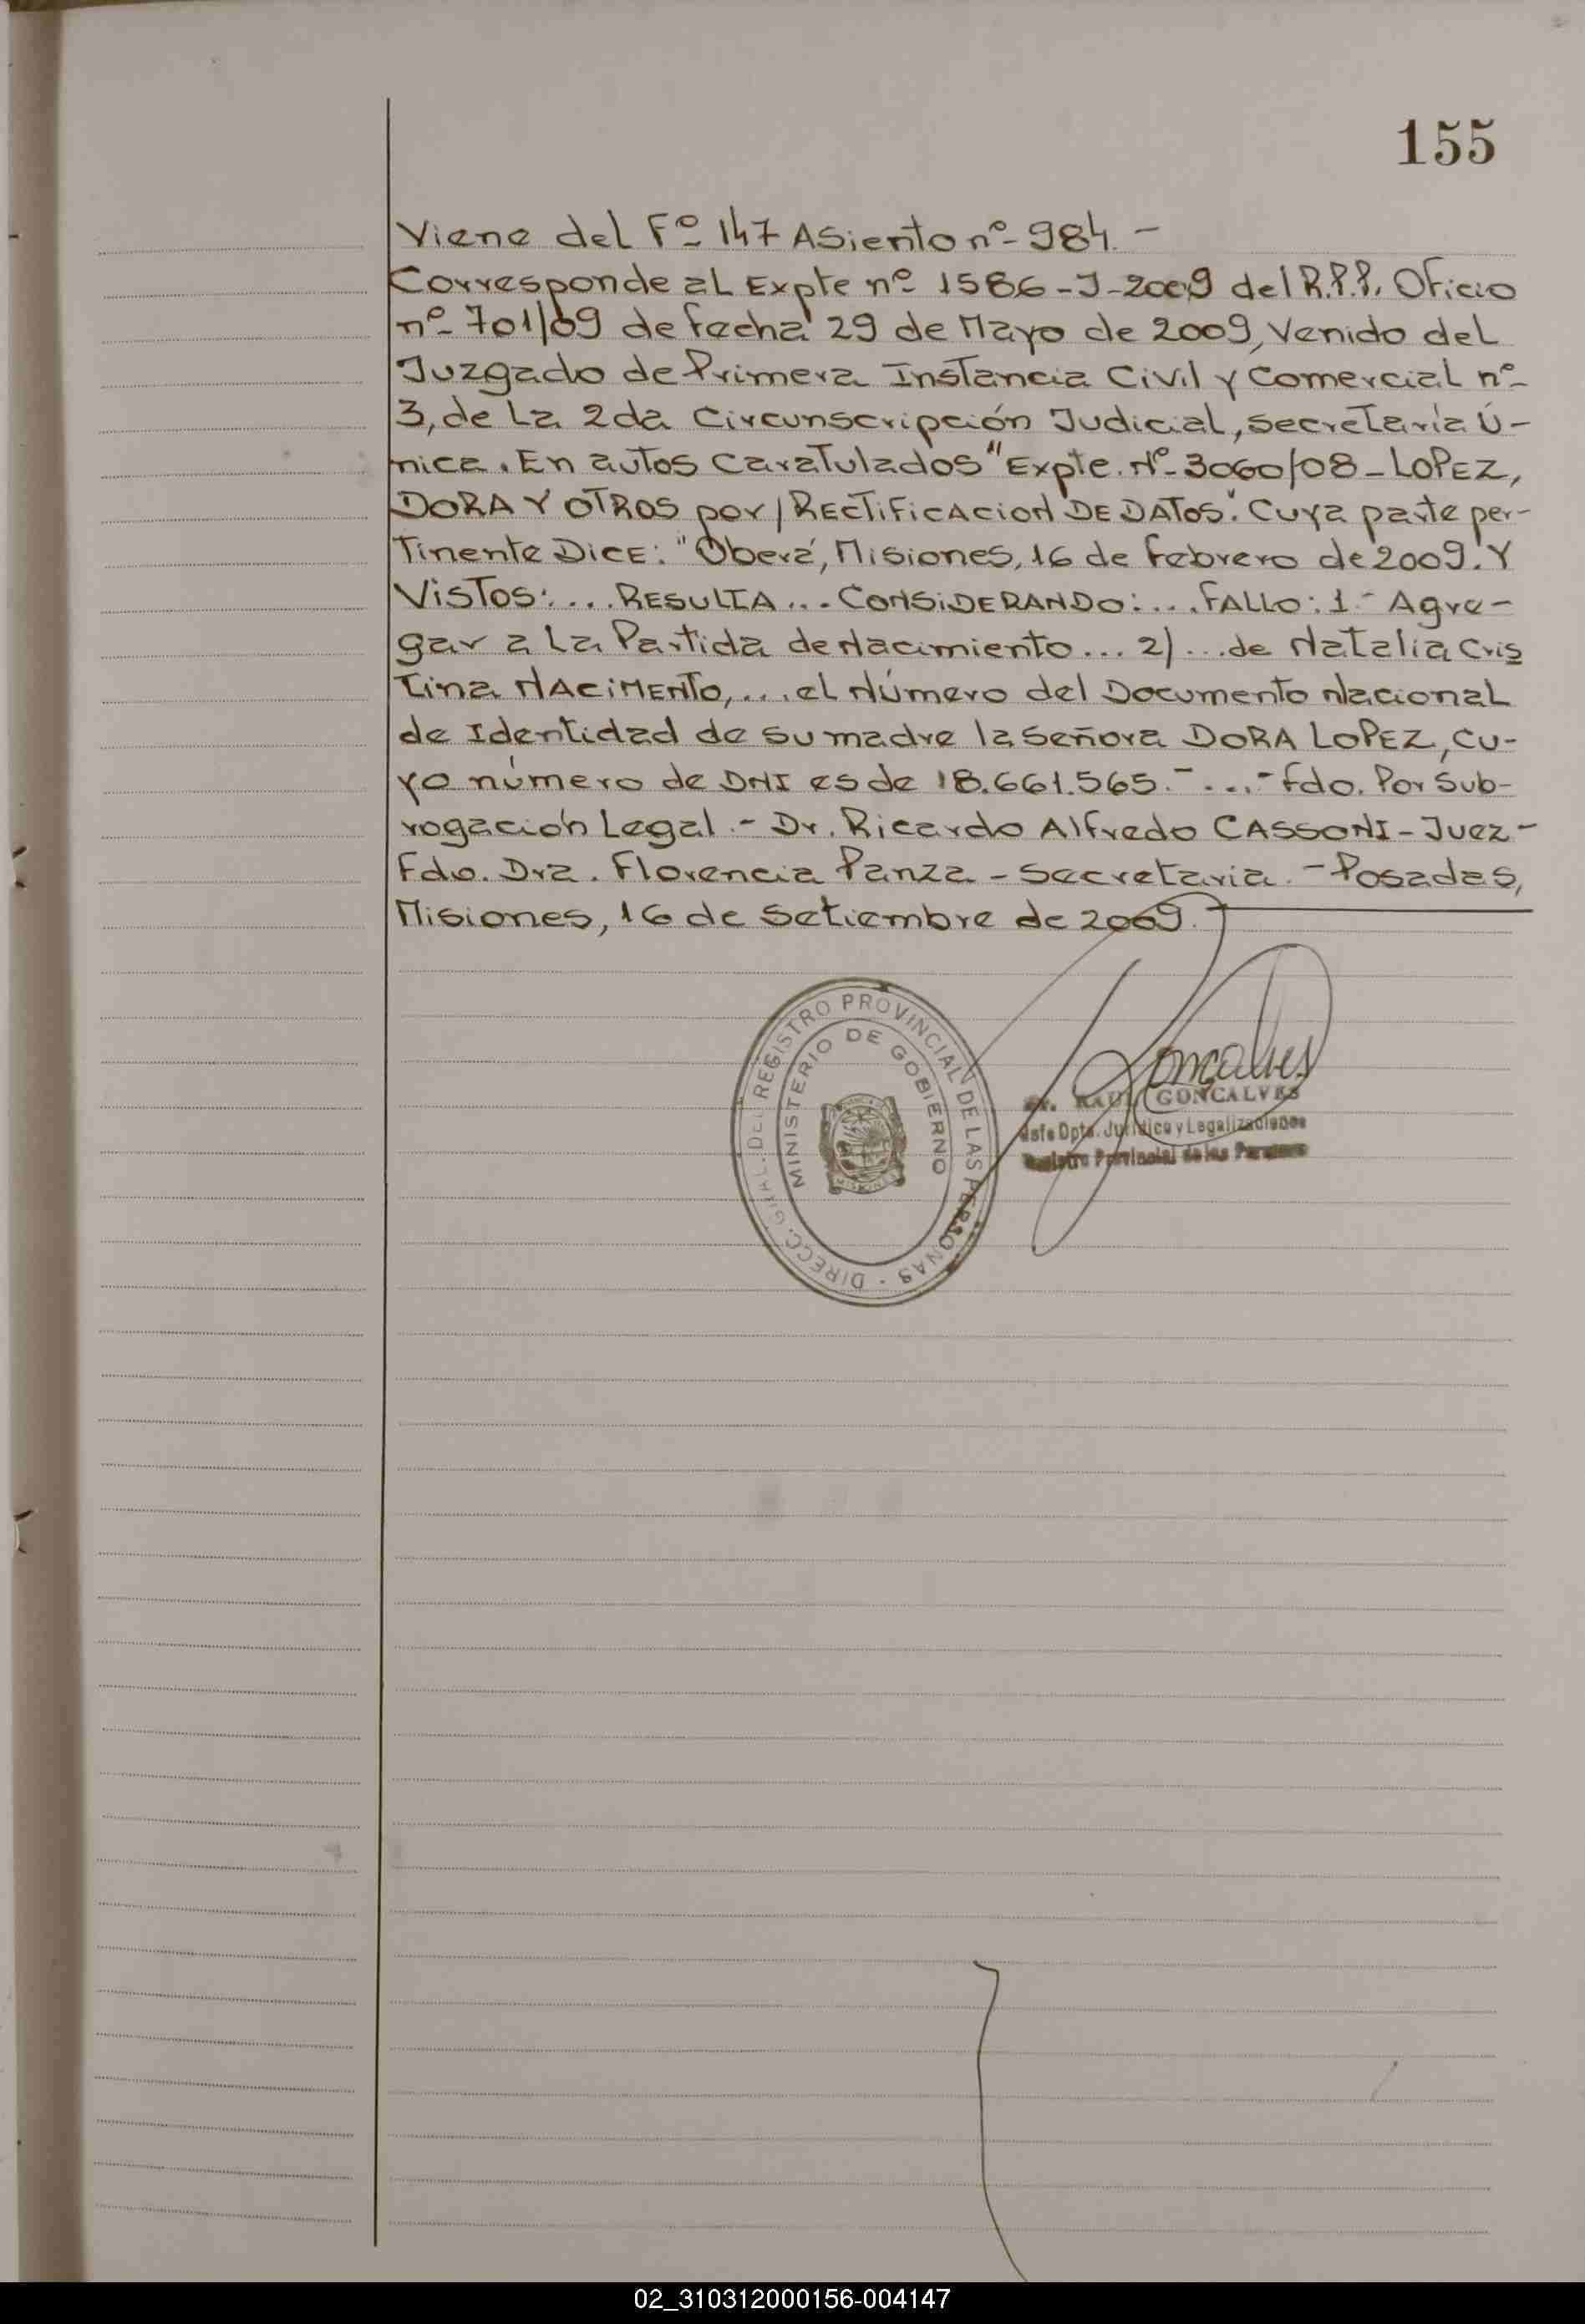 155
Viene del Fº 147 Asiento nº 984.-
Corresponde al Expte nº 1586-J-2009 del R.P.P. Oficio
nº 701/09 de fecha 29 de Mayo de 2009, Venido del
Juzgado de Primera Instancia Civil y Comercial nº
3, de La 2da Circunscripción Judicial, secretaría Ú-
nica. En autos Caratulados "Expte. Nº 3060/08-LOPEZ,
DORA Y OTROS por/RECTIFICACION DE DATOS". Cuya parte per-
tinente DICE: "Oberá, Misiones, 16 de Febrero de 2009. Y
VISTOS:... RESULTA... CONSIDERANDO:... FALLO: 1.- Agre-
gar a La Partida de Nacimiento... 2)... de Natalia Cris
tina NACIMENTO,... el Número del Documento Nacional
de Identidad de su madre la Señora DORA LOPEZ, cu-
yo número de DNI es de 18.661.565.-...- Fdo. Por Sub-
rogación Legal.- Dr. Ricardo Alfredo CASSONI-Juez-
Fdo. Dra. Florencia Panza - Secretaria.- Posadas,
Misiones, 16 de Setiembre de 2009.-
DIRECC. GRAL. DEL REGISTRO PROVINCIAL DE LAS PERSONAS -
MINISTERIO DE GOBIERNO
MISIONES
Goncalves
Dr. RAUL GONCALVES
Jefe Dpto. Jurídico y Legalizaciones
Registro Provincial de las Personas
02_310312000156-004147